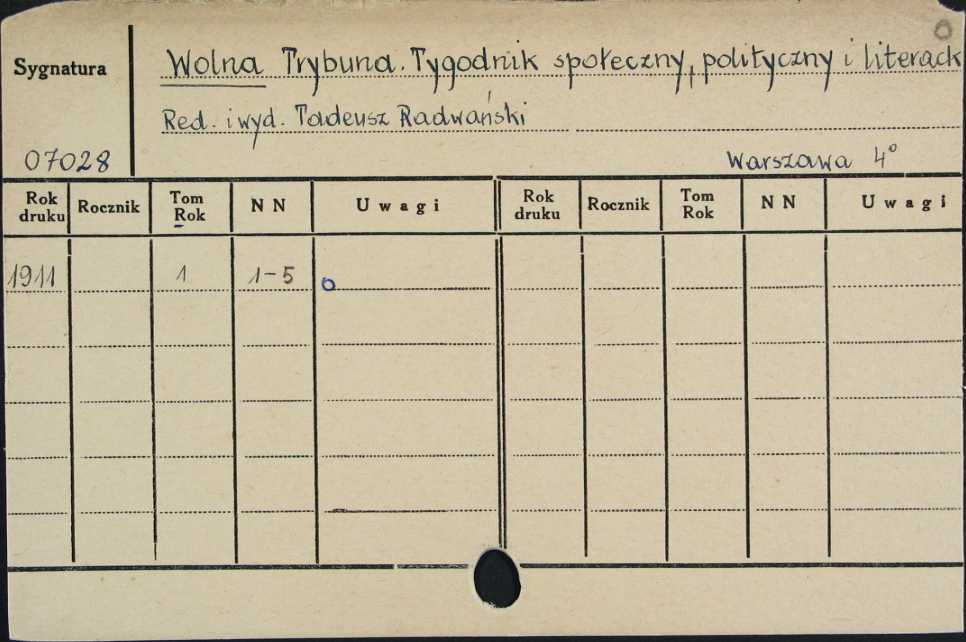 Sygnatura
Wolna Trybuna. Tygodnik społeczny, polityczny i literack
Red. i wyd. Tadeusz Radwański
07028
Warszawa 4°
Rok druku Rocznik Tom Rok NN Uwagi Rok druku Rocznik Tom Rok NN Uwagi
1911 1 1-5 o